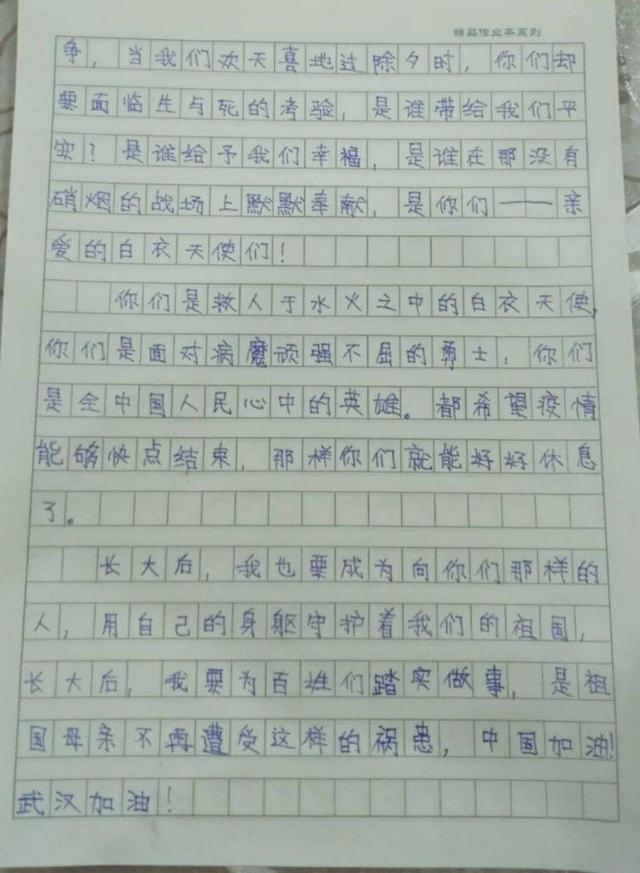 精品作业本系列
争，当我们欢天喜地过除夕时，你们却
要面临生与死的考验，是谁带给我们平
实？是谁给予我们幸福，是谁在那没有
硝烟的战场上默默奉献，是你们——亲
爱的白衣天使们！
你们是救人于水火之中的白衣天使，
你们是面对病魔顽强不屈的勇士，你们
是全中国人民心中的英雄。都希望疫情
能够快点结束，那样你们就能好好休息
了。
长大后，我也要成为向你们那样的
人，用自己的身躯守护着我们的祖国，
长大后，我要为百姓们踏实做事，是祖
国母亲不再遭受这样的祸患，中国加油！
武汉加油！